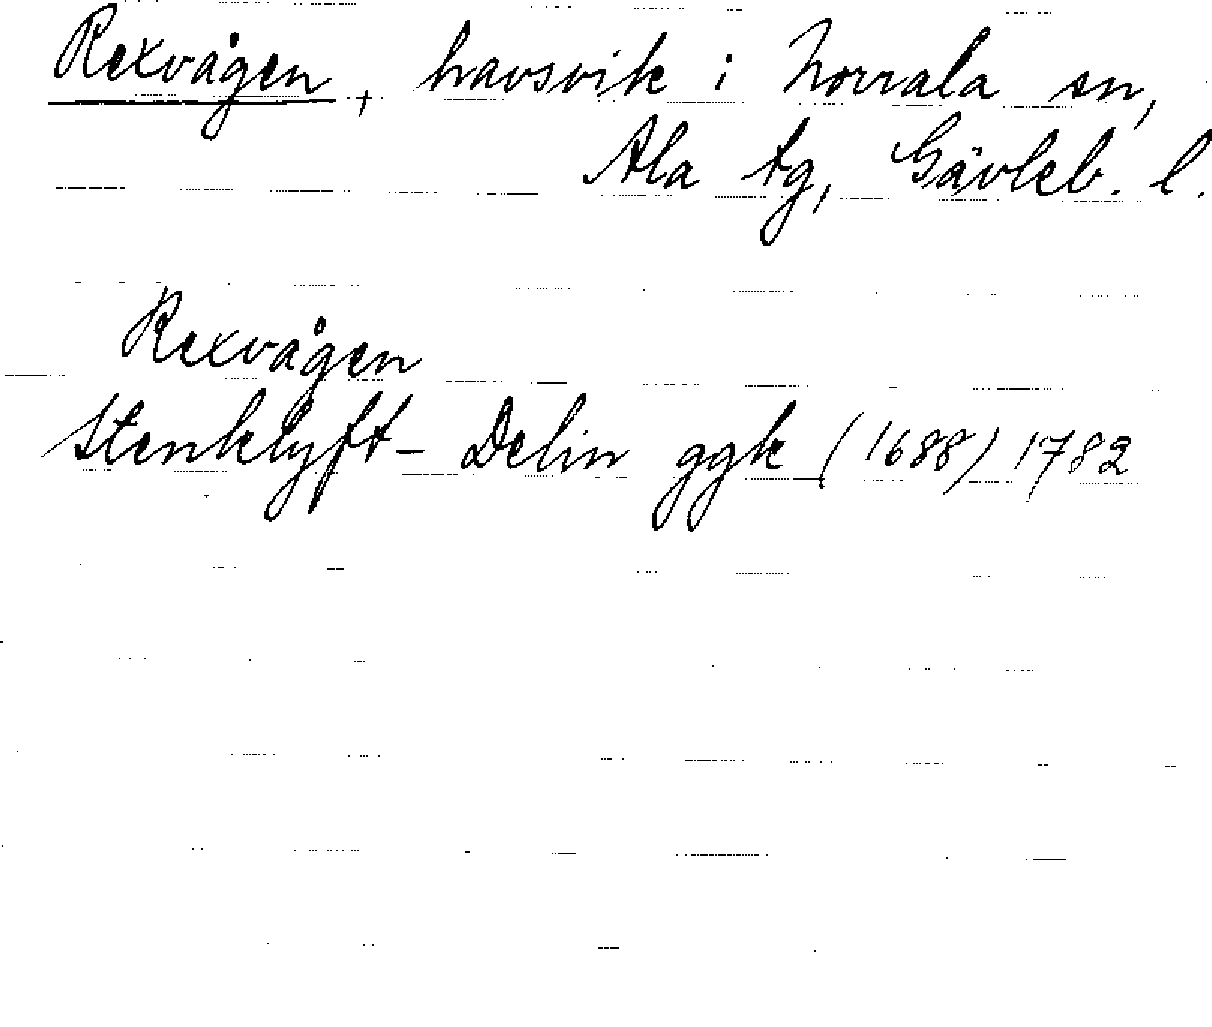 Rexvågen, havsvik i Norrala sn,
Ala tg, Gävleb. l.
Rexvågen
Stenklyft- Delin ggk (1688) 1782